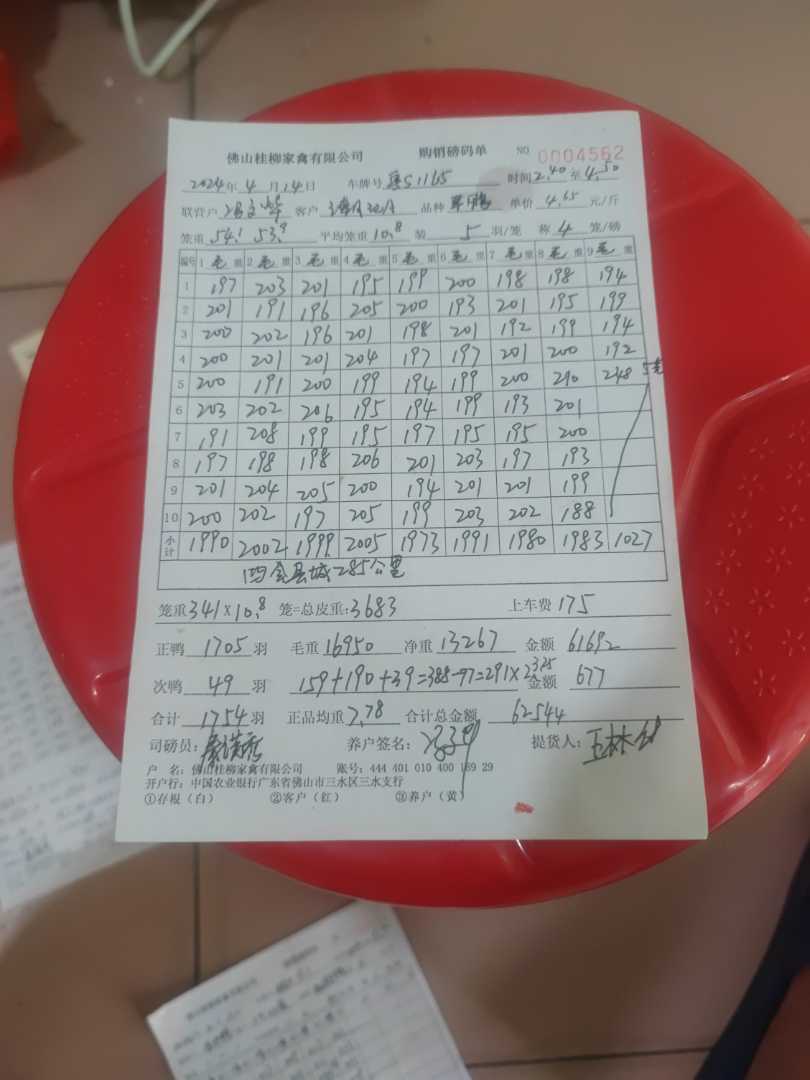 佛山桂柳家禽有限公司 购销磅码单 NO 0004562
2024年4月14日 车牌号 S1165 时间2.40至4.50
联营户 客户 品种 单价 4.65 元/斤
笼重 54.1 53.9 平均笼重10.8 装 5 羽/笼 称 4 笼/磅
编号 1 毛 重 2 毛 重 3 毛 重 4 毛 重 5 毛 重 6 毛 重 7 毛 重 8 毛 重 9 毛 重
1 197 203 201 195 199 200 198 198 194
2 201 191 196 205 200 193 201 195 199
3 200 202 196 201 198 201 192 199 194
4 200 201 201 204 197 197 201 200 192
5 200 191 200 199 194 199 200 210 248 5毛
6 203 202 206 195 194 199 193 201
7 191 208 199 195 197 195 195 200
8 197 198 198 206 201 203 197 193
9 201 204 205 200 194 201 201 199
10 200 202 197 205 199 203 202 188
小计 1990 2002 1999 2005 1973 1991 1980 1983 1027
四会县城285公里
笼重341×10.8 笼=总皮重:3683 上车费 175
正鸭 1705 羽 毛重 16950 净重 13267 金额 61692
次鸭 49 羽 159+190+39=388-97=291×2.325 金额 677
合计 1754羽 正品均重 7.78 合计总金额 62544
司磅员: 养户签名: 提货人:
户 名:佛山桂柳家禽有限公司 账号:444 401 010 400 189 29
开户行:中国农业银行广东省佛山市三水区三水支行
①存根(白) ②客户(红) ③养户(黄)